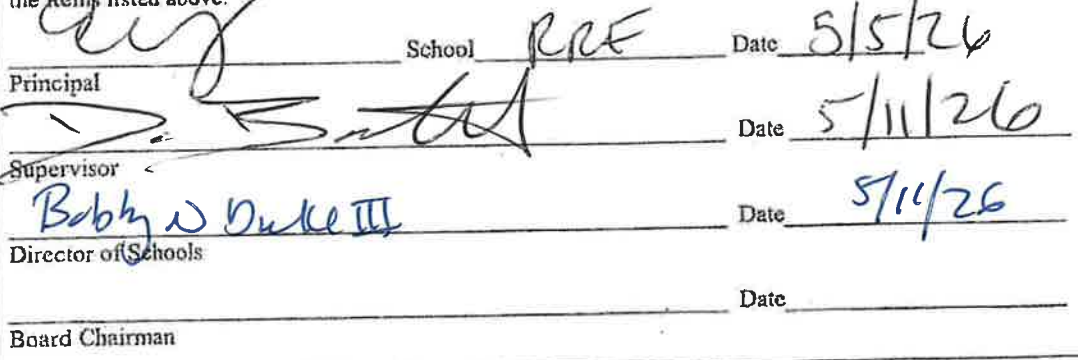 the items listed above.
School RRE Date 5/5/26
Principal
Date 5/11/26
Supervisor
Bobby N Duke III Date 5/11/26
Director of Schools
Date
Board Chairman